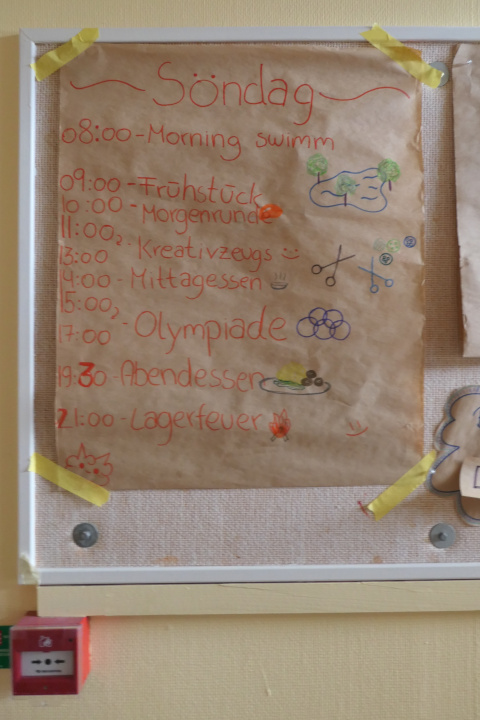 Söndag
08:00 - Morning swimm
09:00 - Frühstück
10:00 - Morgenrunde
11:00
13:00 - Kreativzeugs
14:00 - Mittagessen
15:00
17:00 - Olympiade
19:30 - Abendessen
21:00 - Lagerfeuer